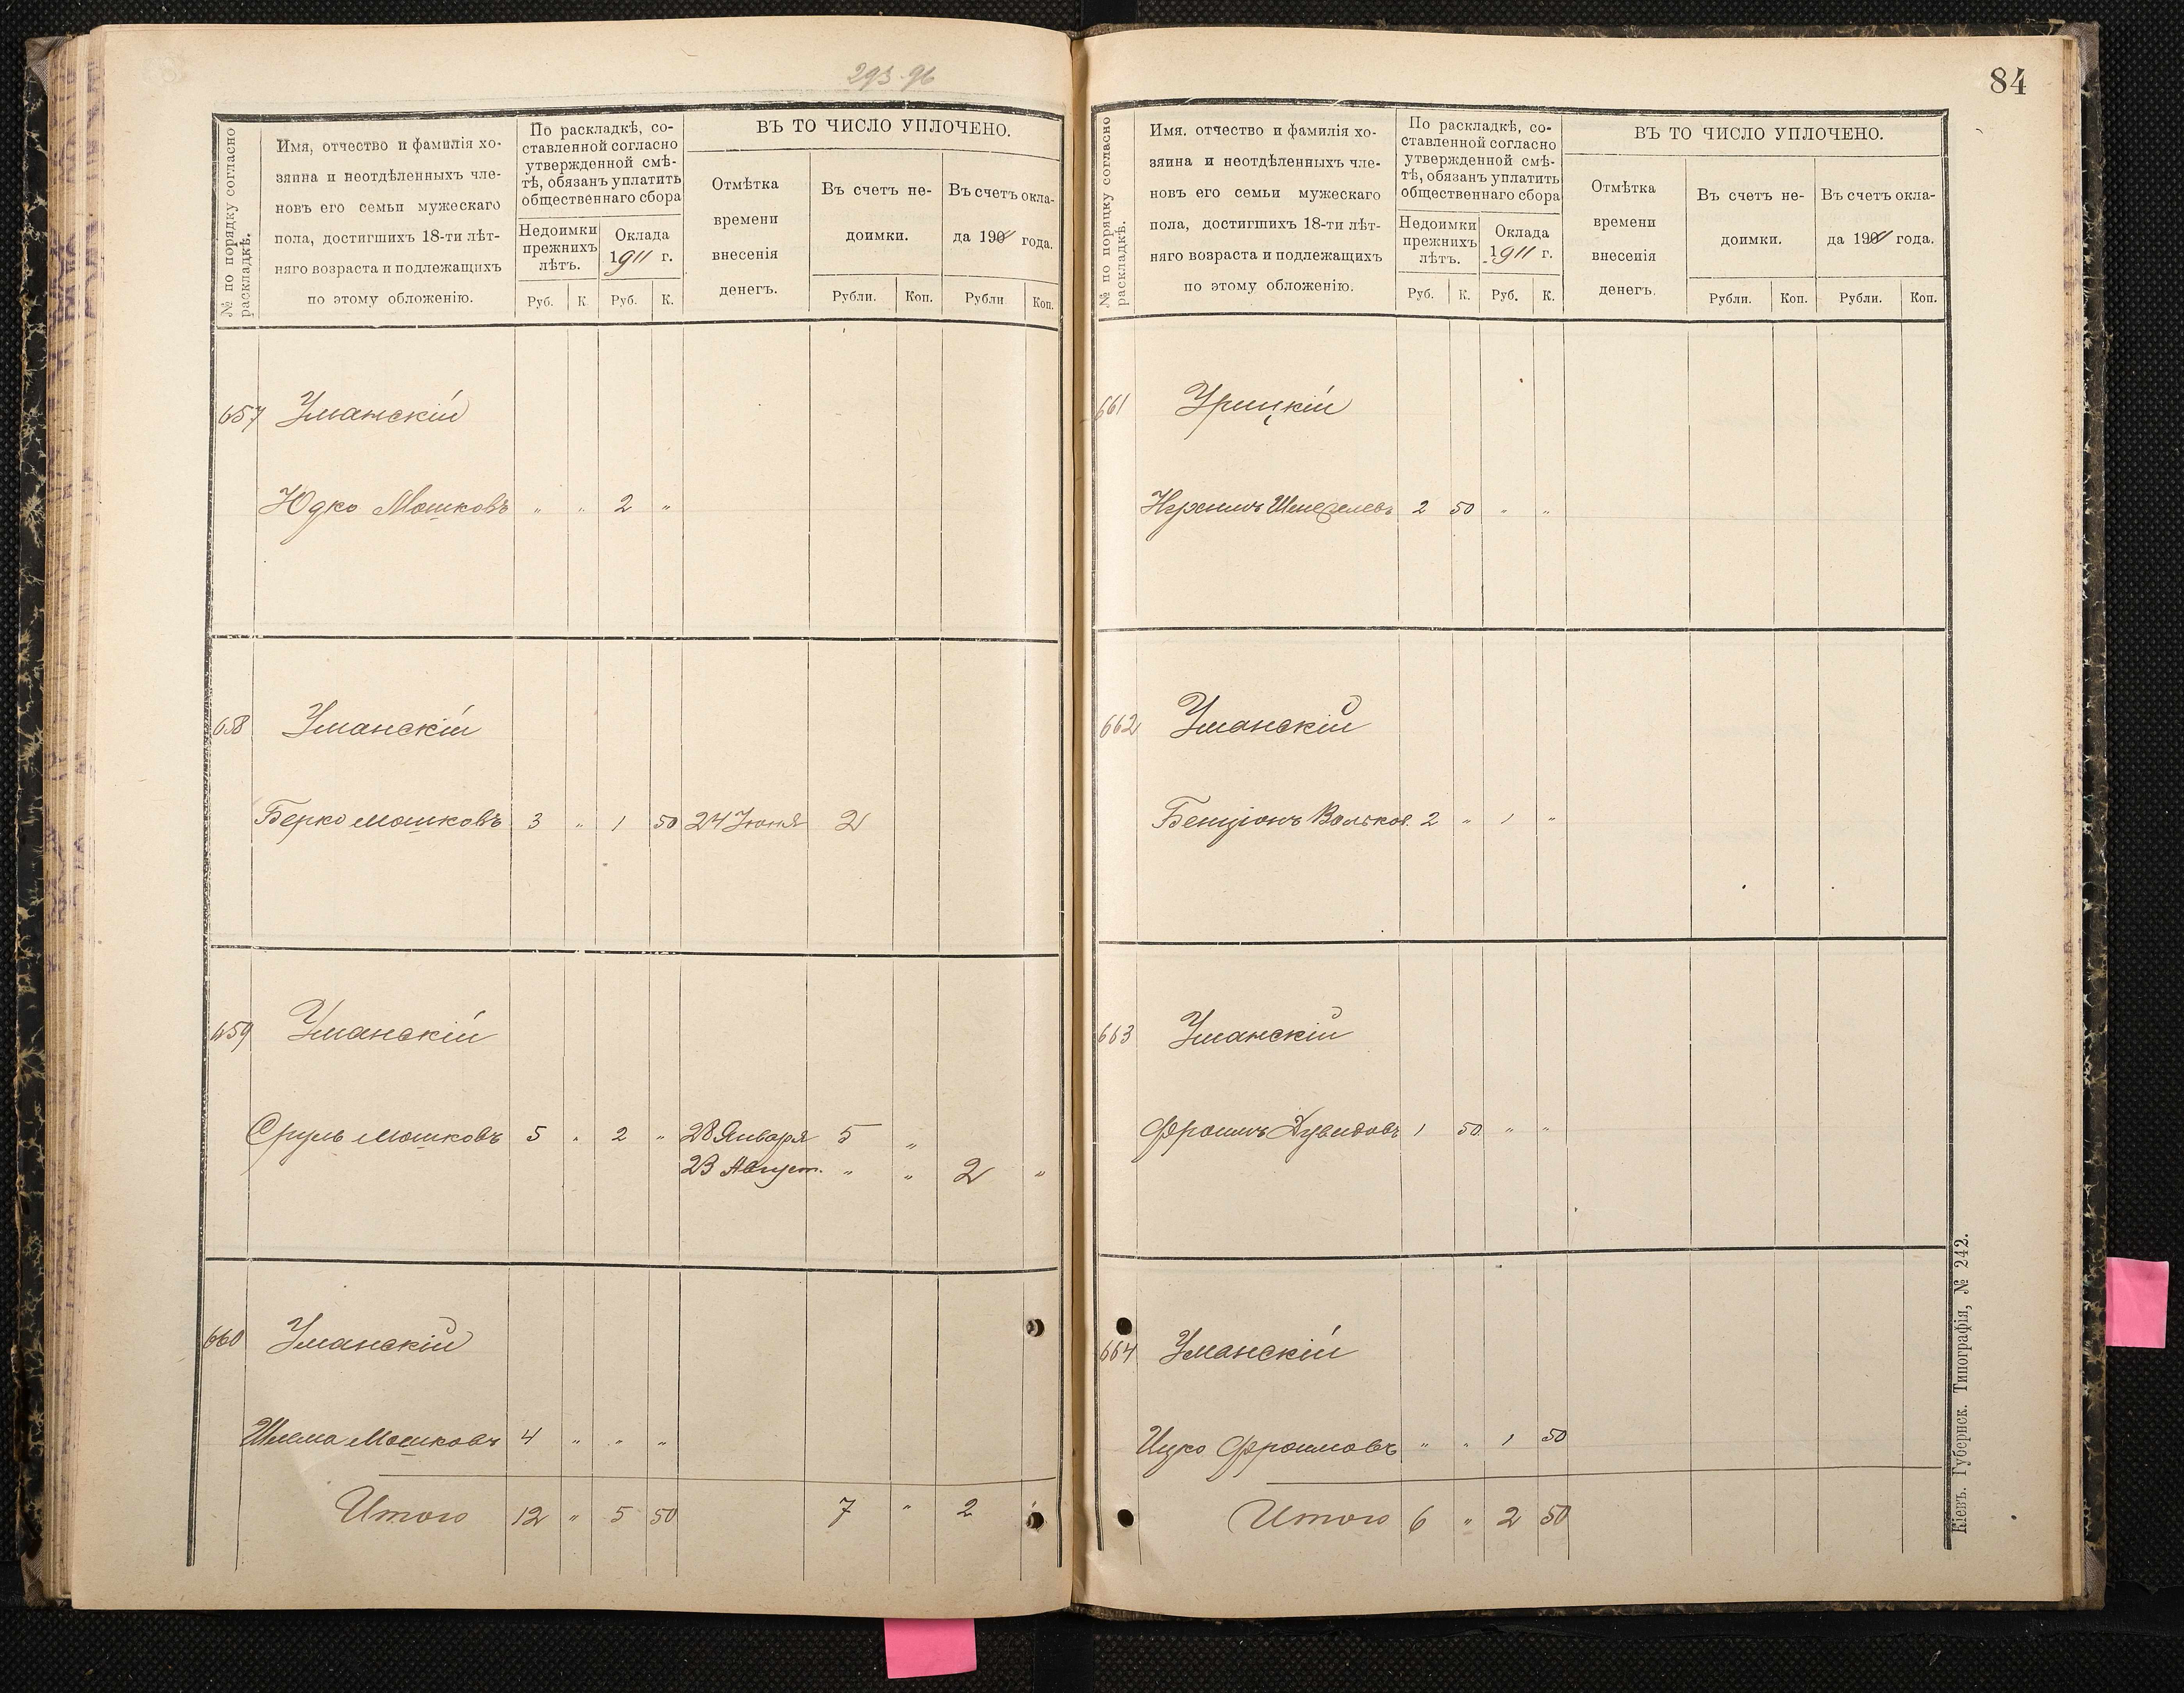 293-96
№ по порядку согласно раскладкѣ.
Имя, отчество и фамилія хо-
зяина и неотдѣленныхъ чле-
новъ его семьи мужескаго
пола, достигшихъ 18-ти лѣт-
няго возраста и подлежащихъ
по этому обложенію.
По раскладкѣ, со-
ставленной согласно
утвержденной смѣ-
тѣ, обязанъ уплатить
общественнаго сбора
Недоимки
прежнихъ
лѣтъ.
Оклада
1911 г.
Руб. К. Руб. К.
ВЪ ТО ЧИСЛО УПЛОЧЕНО.
Отмѣтка
времени
внесенія
денегъ.
Въ счетъ не-
доимки.
Въ счетъ окла-
да 190 года.
Рубли. Коп. Рубли Коп.
657 Уманскій
Юдко Мошковъ " " 2 "
658 Уманскій
Берко Мошковъ 3 " 1 50 24 Іюня 2
659 Уманскій
Сруль Мошковъ 5 " 2 " 28 Января 5 "
23 Август. " " 2 "
660 Уманскій
Шлема Мошковъ 4 " " "
Итого 12 " 5 50 7 " 2 "
84
№ по порядку согласно раскладкѣ.
Имя. отчество и фамилія хо-
зяина и неотдѣленныхъ чле-
новъ его семьи мужескаго
пола, достигшихъ 18-ти лѣт-
няго возраста и подлежащихъ
по этому обложенію.
По раскладкѣ, со-
ставленной согласно
утвержденной смѣ-
тѣ, обязанъ уплатить
общественнаго сбора
Недоимки
прежнихъ
лѣтъ.
Оклада
1911 г.
Руб. К. Руб. К.
ВЪ ТО ЧИСЛО УПЛОЧЕНО.
Отмѣтка
времени
внесенія
денегъ.
Въ счетъ не-
доимки.
Въ счетъ окла-
да 190 года.
Рубли. Коп. Рубли. Коп.
661 Урицкій
2 50 " "
662 Уманскій
Бенціонъ Вольков. 2 " 1 "
663 Уманскій
Фроимъ Дувидовъ 1 50 " "
664 Уманскій
Ицко Фроимовъ " " 1 50
Итого 6 " 2 50
Кіевъ. Губернск. Типографія, № 242.